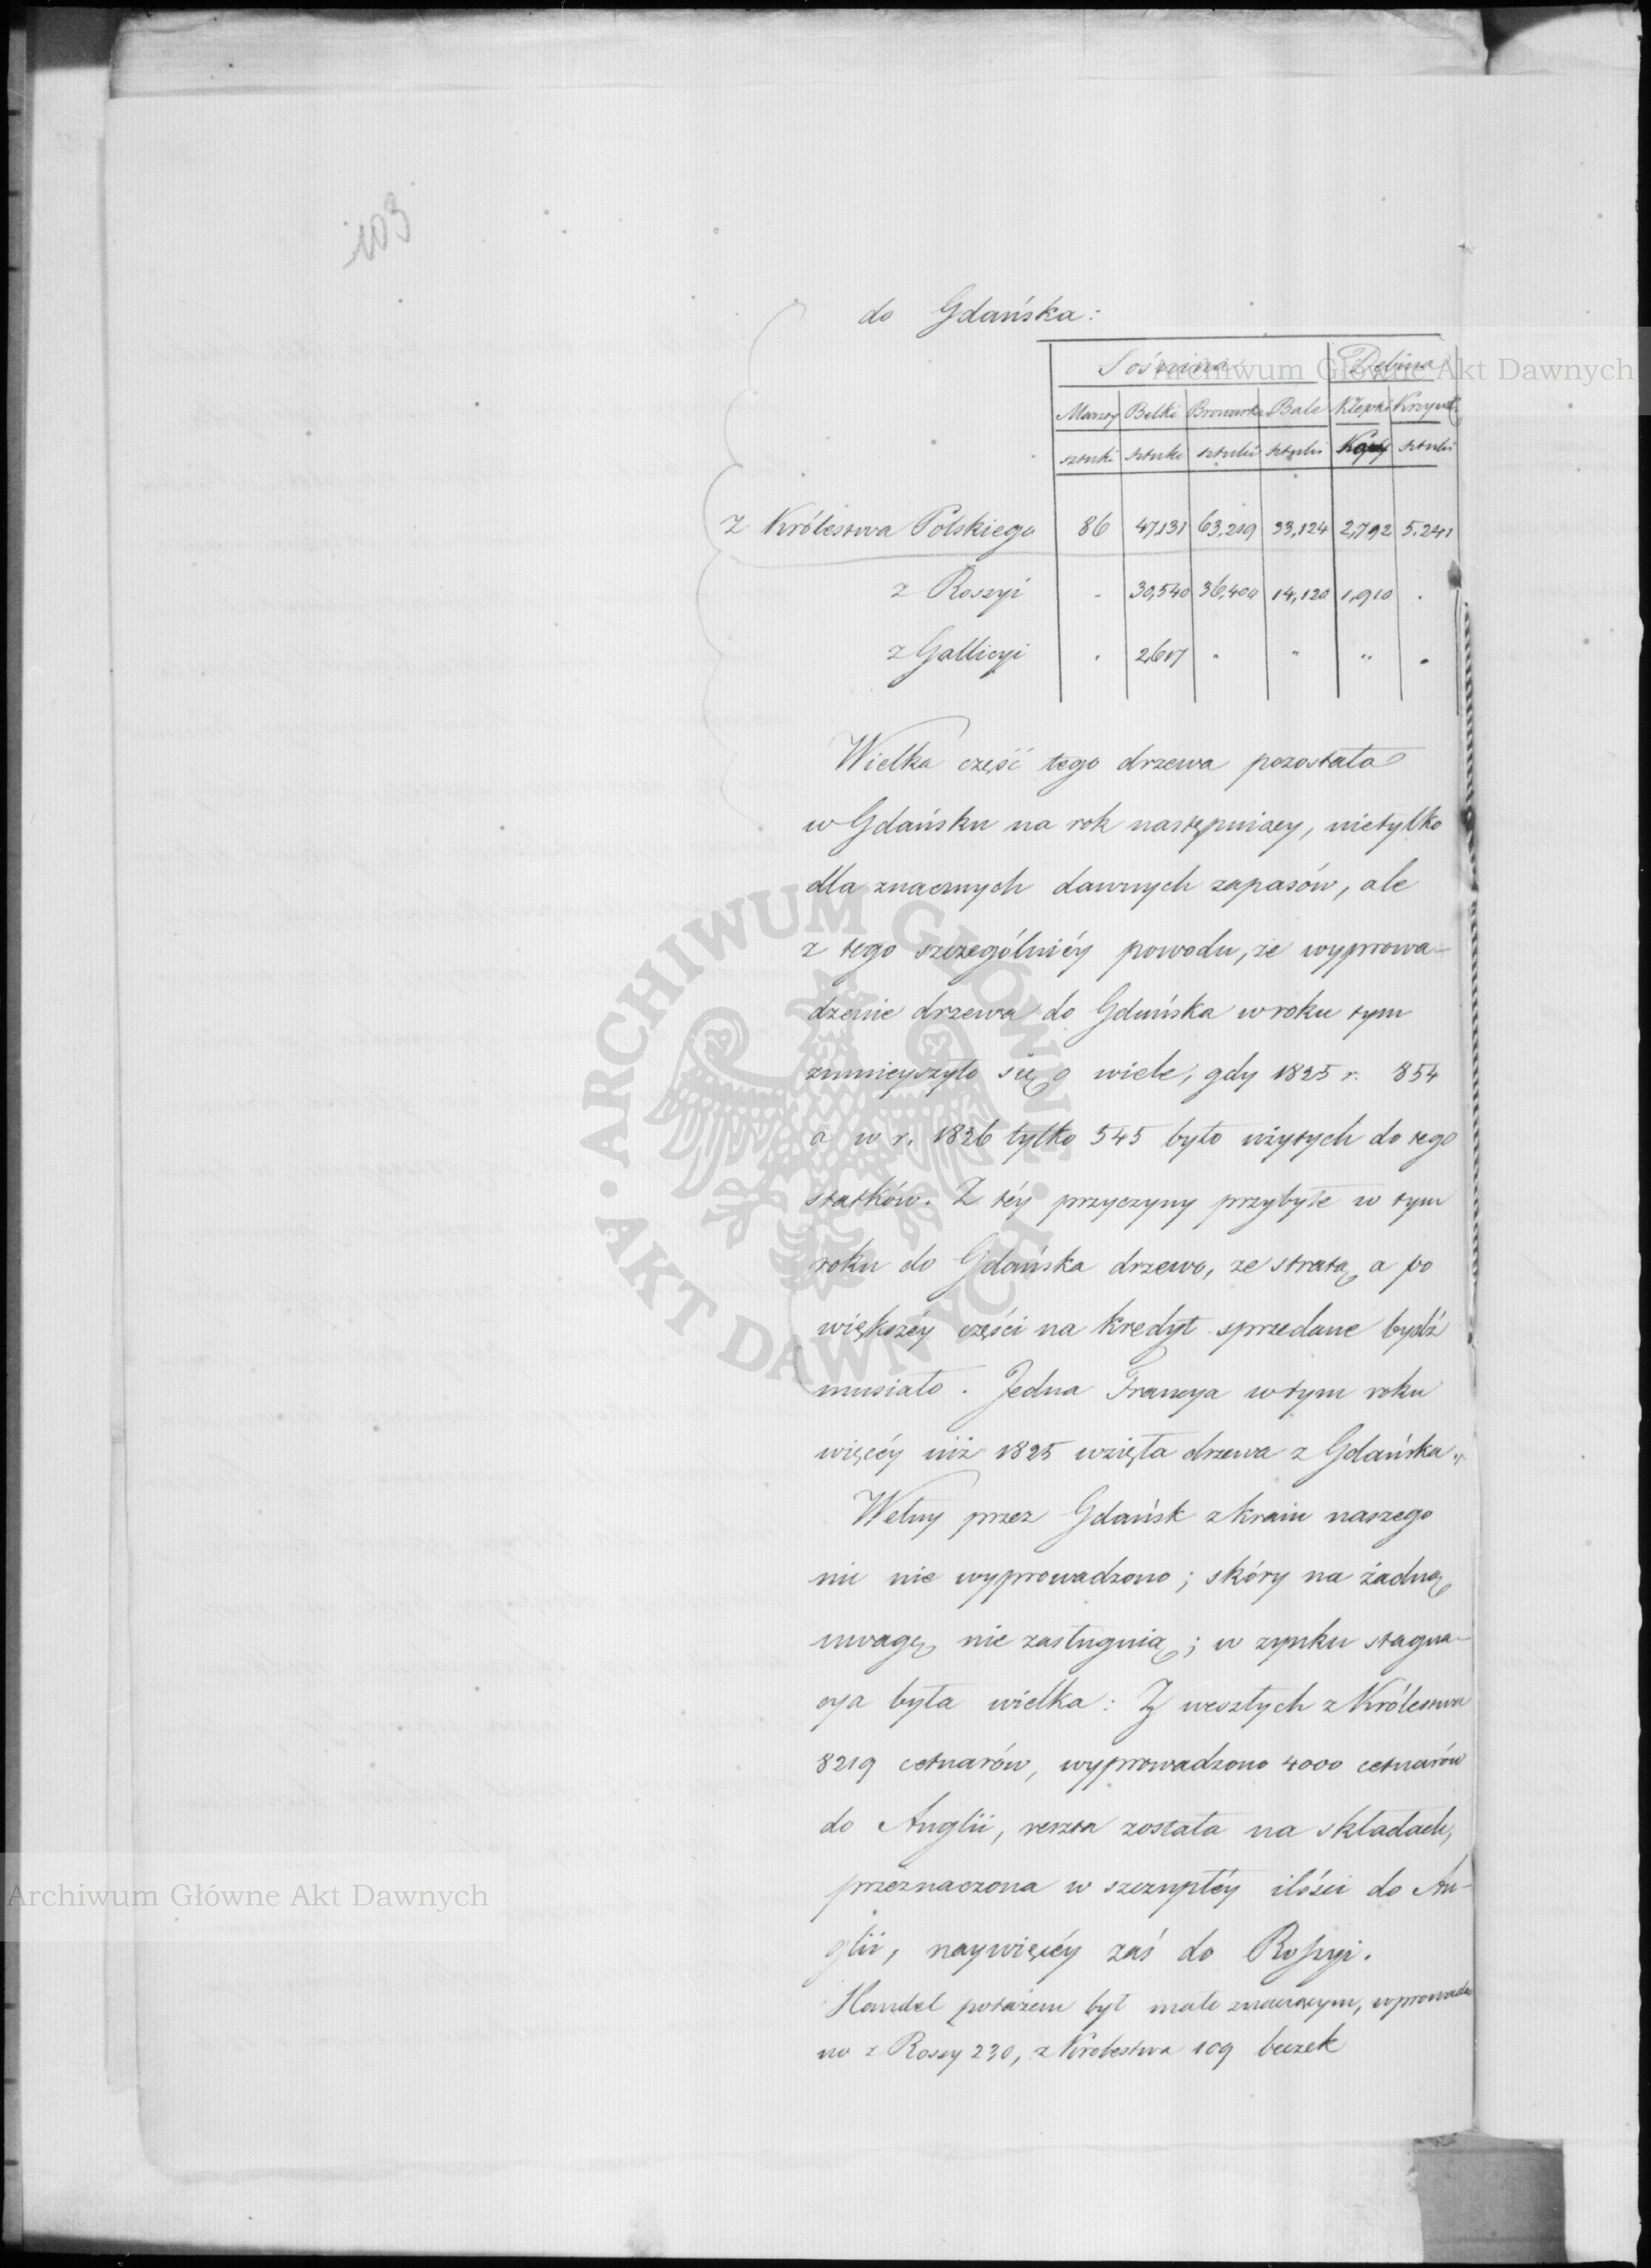 do Gdańska:
Sośnina Dębina
Maszty Belki Bale Klepki
sztuki sztuki sztuki sztuki Kopy sztuki
z Królestwa Polskiego 86 47,131 63,219 33,124 2,792 5.241
z Rossyi " 30,540 36,400 14,120 1,910 "
z Gallicyi " 2,617 " " " "
Wielka część tego drzewa pozostała
w Gdańsku na rok następuiący, nietylko
dla znacznych dawnych zapasów, ale
z tego szczególniéy powodu, że wyprowa-
dzenie drzewa do Gdańska w roku tym
zmnieyszyło się o wiele, gdy 1825 r. 854
a w r. 1826 tylko 545 było użytych do tego
statków. Z téy przyczyny przybyłe w tym
roku do Gdańska drzewo, ze stratą a po
większéy części na kredyt sprzedane bydź
musiało. Jedna Francya w tym roku
więcéy niż 1825 wzięła drzewa z Gdańska.
Wełny przez Gdańsk z kraiu naszego
nic nie wyprowadzono; skóry na żadną
uwagę nie zasługuią; w zynku stagna-
cya była wielka: Z weszłych z Królestwa
8219 cetnarów, wyprowadzono 4000 cetnarów
do Anglii, reszta została na składach,
przeznaczona w szczupłéy ilości do An-
glii, naywięcéy zaś do Rossyi.
Handel potażem był mało znaczącym, wprowadzo
no z Rossy 230, z Krolestwa 109 beczek
103
Archiwum Główne Akt Dawnych
ARCHIWUM GŁÓWNE · AKT DAWNYCH ·
Archiwum Główne Akt Dawnych